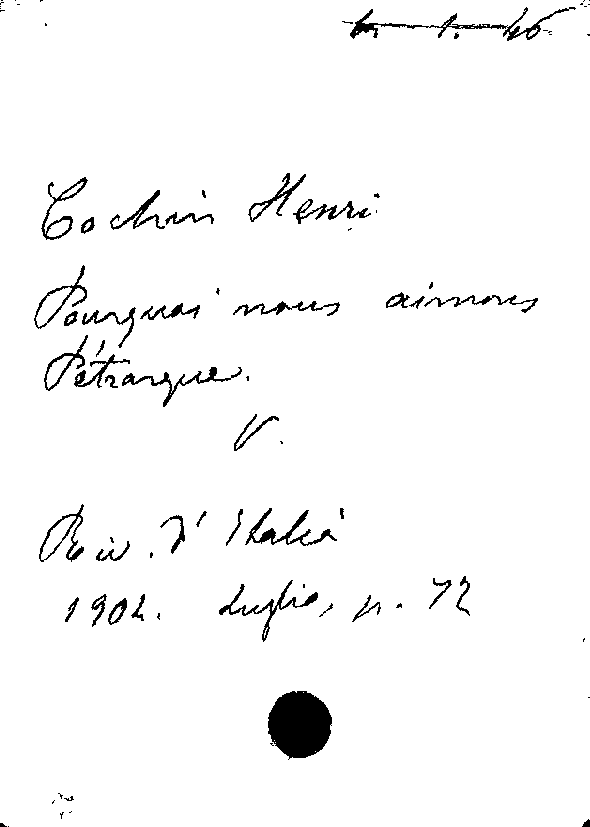 Cochin Henri
Pourquoi nous aimons
Pétrarque.
V.
Riv. d'Italia
1904. Luglio, p. 72